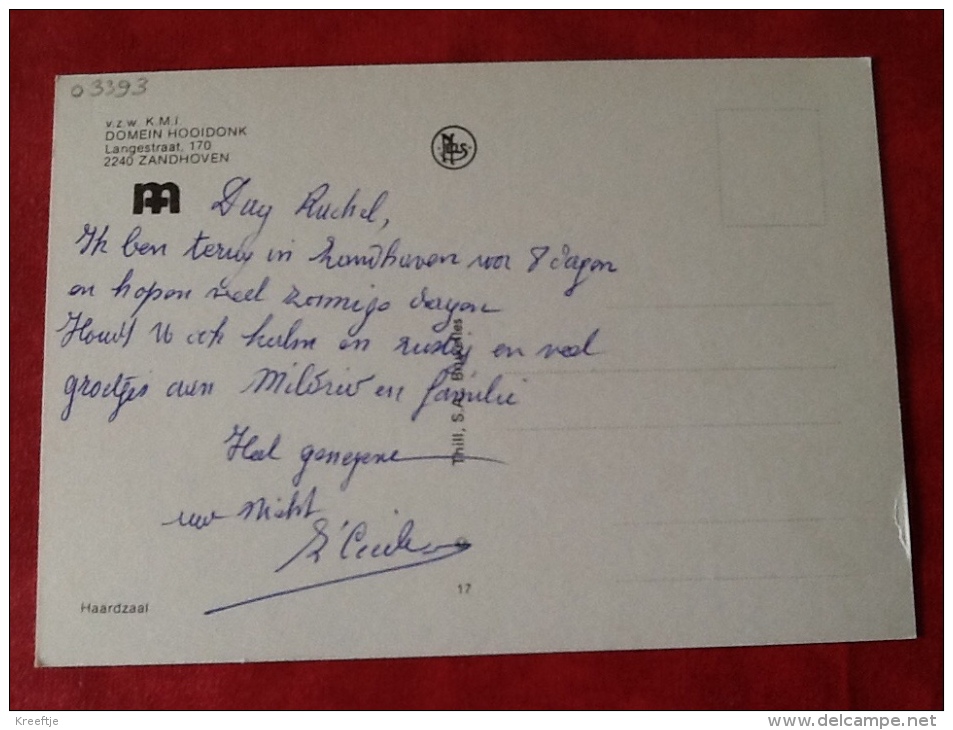 03393
v.z.w. K.M.I.
DOMEIN HOOIDONK
Langestraat, 170
2240 ZANDHOVEN
NELS
Dag Rachel,
Ik ben terug in Zandhoven voor 8 dagen
en hopen veel zonnige dagen
Houdt U ook kalm en rustig en veel
groetjes aan en familie
Heel genegene
uw Nicht
Zr Cecile
Thill, S.A. Bruxelles
17
Haardzaal
Kreeftje
www.delcampe.net